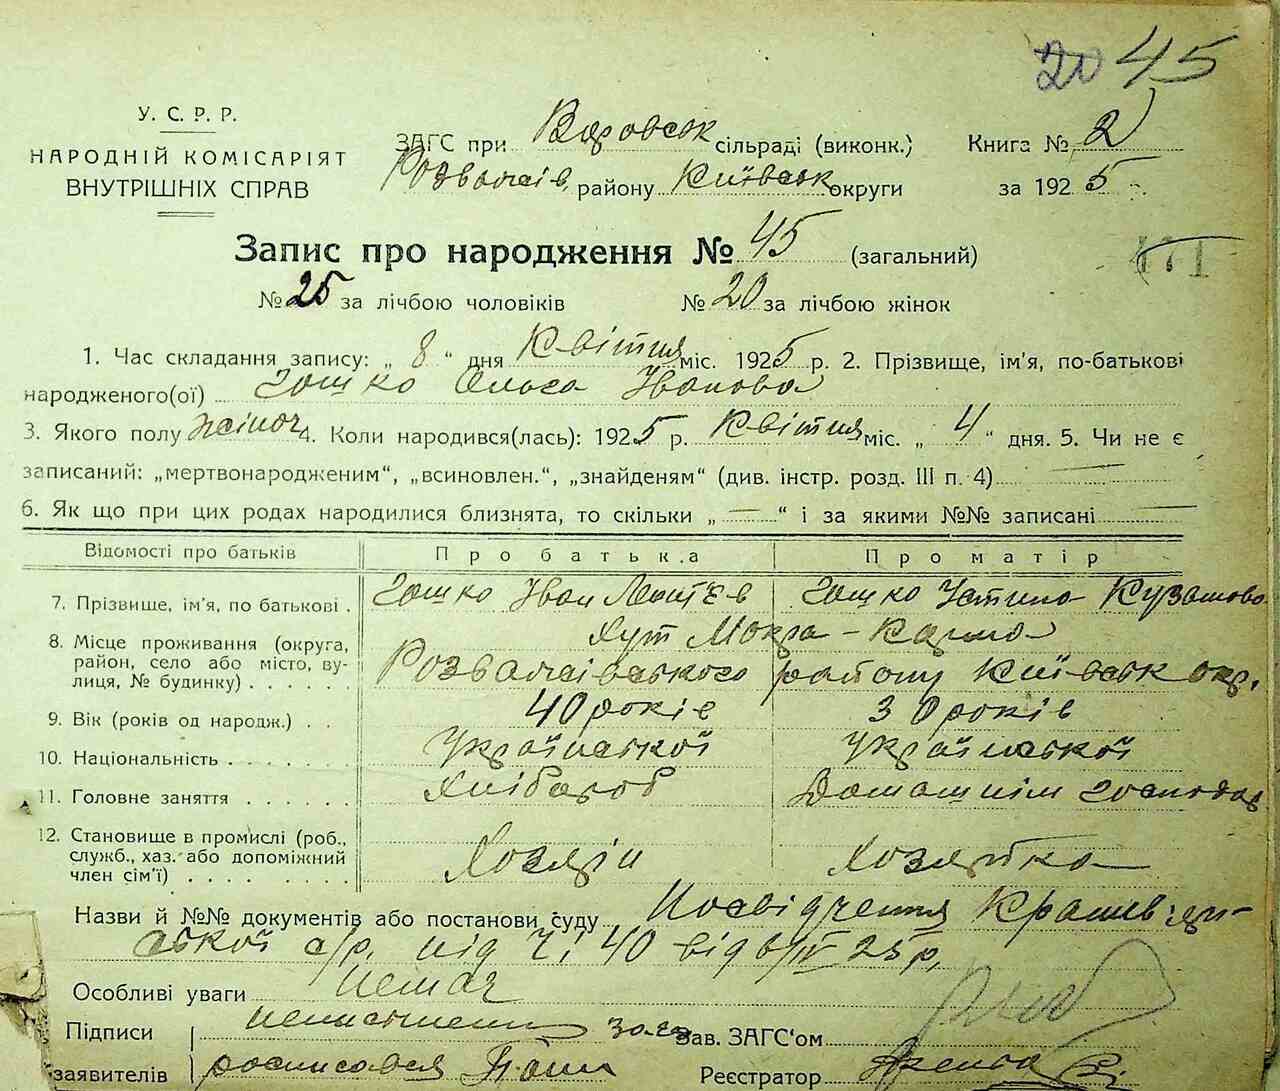 20 45
У. С. Р. Р.
НАРОДНІЙ КОМІСАРІЯТ
ВНУТРІШНІХ СПРАВ
ЗАГС при сільраді (виконк.) Книга № 2
Розважаїв. району Київськ округи за 1925 р.
Запис про народження № 45 (загальний)
471
№ 25 за лічбою чоловіків № 20 за лічбою жінок
1. Час складання запису: „ 8 “ дня Квітня міс. 1925 р. 2. Прізвище, ім'я, по-батькові
народженого(ої) Гошко Ольга Іванова
3. Якого полу жіноч 4. Коли народився(лась): 1925 р. Квітня міс. „ 4 “ дня. 5. Чи не є
записаний: „мертвонародженим“, „всиновлен.“, „знайденям“ (див. інстр. розд. III п. 4)
6. Як що при цих родах народилися близнята, то скільки „ — “ і за якими №№ записані
Відомості про батьків Про батька Про матір
7. Прізвище, ім'я, по батькові . Гошко Іван Гошко Устина Кузьмова
8. Місце проживання (округа, район, село або місто, вулиця, № будинку) . . . . . . Хут Мокра-Карма
Розважаївського району Київськ окр.
9. Вік (років од народж.) . . 40 років 30 років
10. Національність . . . . . . Української Української
11. Головне заняття . . . . . . Хлібороб Домашнім господар
12. Становище в промислі (роб., служб., хаз. або допоміжний член сім'ї) . . . . . . Хозяїн Хозяйка
Назви й №№ документів або постанови суду Посвідчення
ської с/р. під Ч: 40 від 6/IV 25 р.
Особливі уваги немає
Підписи неписьмен за Зав. ЗАГС'ом
заявителів росписався Реєстратор